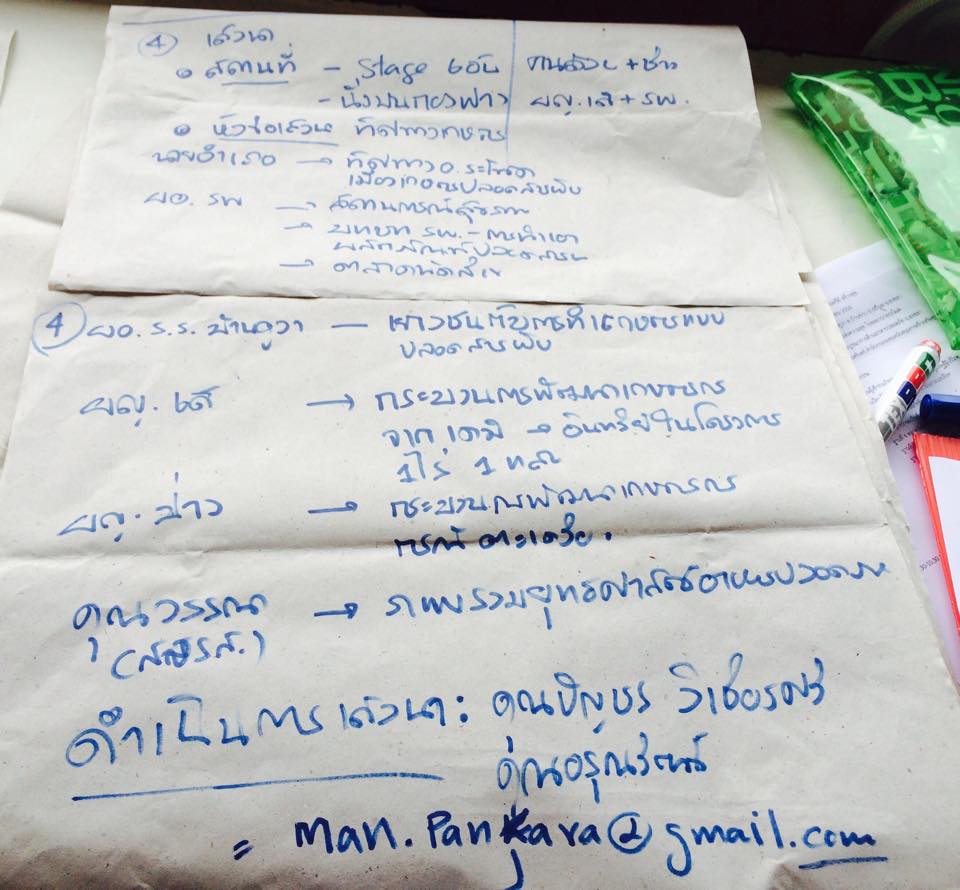 ④ เสวนา
• สถานที่ - Stage
- นั่งบนกองฟาง ผญ.เส + รพ.
• หัวข้อเสวนา ทิศทางเกษตร
นายอำเภอ → ทิศทาง อ.ระโนด
เมืองเกษตรปลอดสารพิษ
ผอ. รพ → สถานการณ์สุขภาพ
→ บทบาท รพ. - การทำเอา
→ ตลาดนัดสีเขียว
④ ผอ. ร.ร. บ้าน - เยาวชนกับการทำเกษตรแบบ
ปลอดสารพิษ
ผญ. เส → กระบวนการพัฒนาเกษตรกร
จาก เคมี → อินทรีย์ในโครงการ
1 ไร่ 1 แสน
ผญ. ข่าว → กระบวนการพัฒนาเกษตรกร
กรณี ตะเครียะ.
คุณวรรณา → ภาพรวมยุทธศาสตร์อาหารปลอดภัย
ดำเนินการเสวนา : คุณบัญชร วิเชียรศรี
คุณอรุณรัตน์
= man.Pankara@gmail.com